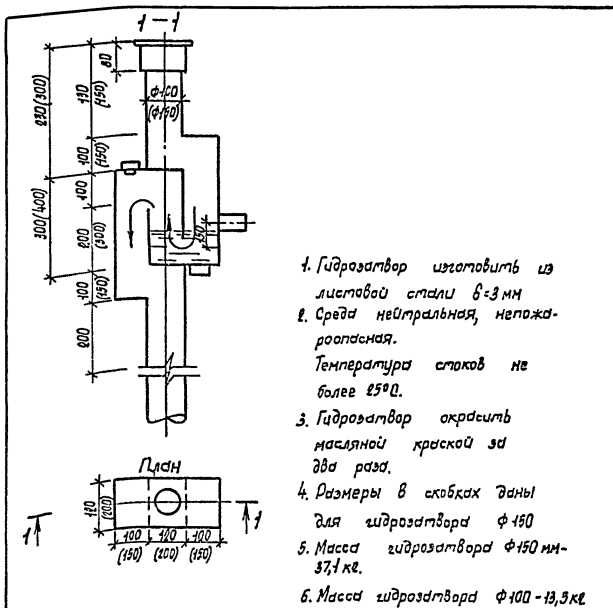 1-1
80
130
(150)
230(300)
Ф100
(Ф150)
100
(150)
100
300(400)
200
(300)
150
100
(150)
200
План
120
(200)
1
1
100 120 100
(150) (200) (150)
1. Гидрозатвор изготовить из
листовой стали б=3 мм
2. Среда нейтральная, непожа-
роопасная.
Температура стоков не
более 25°С.
3. Гидрозатвор окрасить
масляной краской за
два раза.
4. Размеры в скобках даны
для гидрозатвора ф 150
5. Масса гидрозатвора Ф150 мм-
37,1 кг.
6. Масса гидрозатвора Ф100-13,3кг